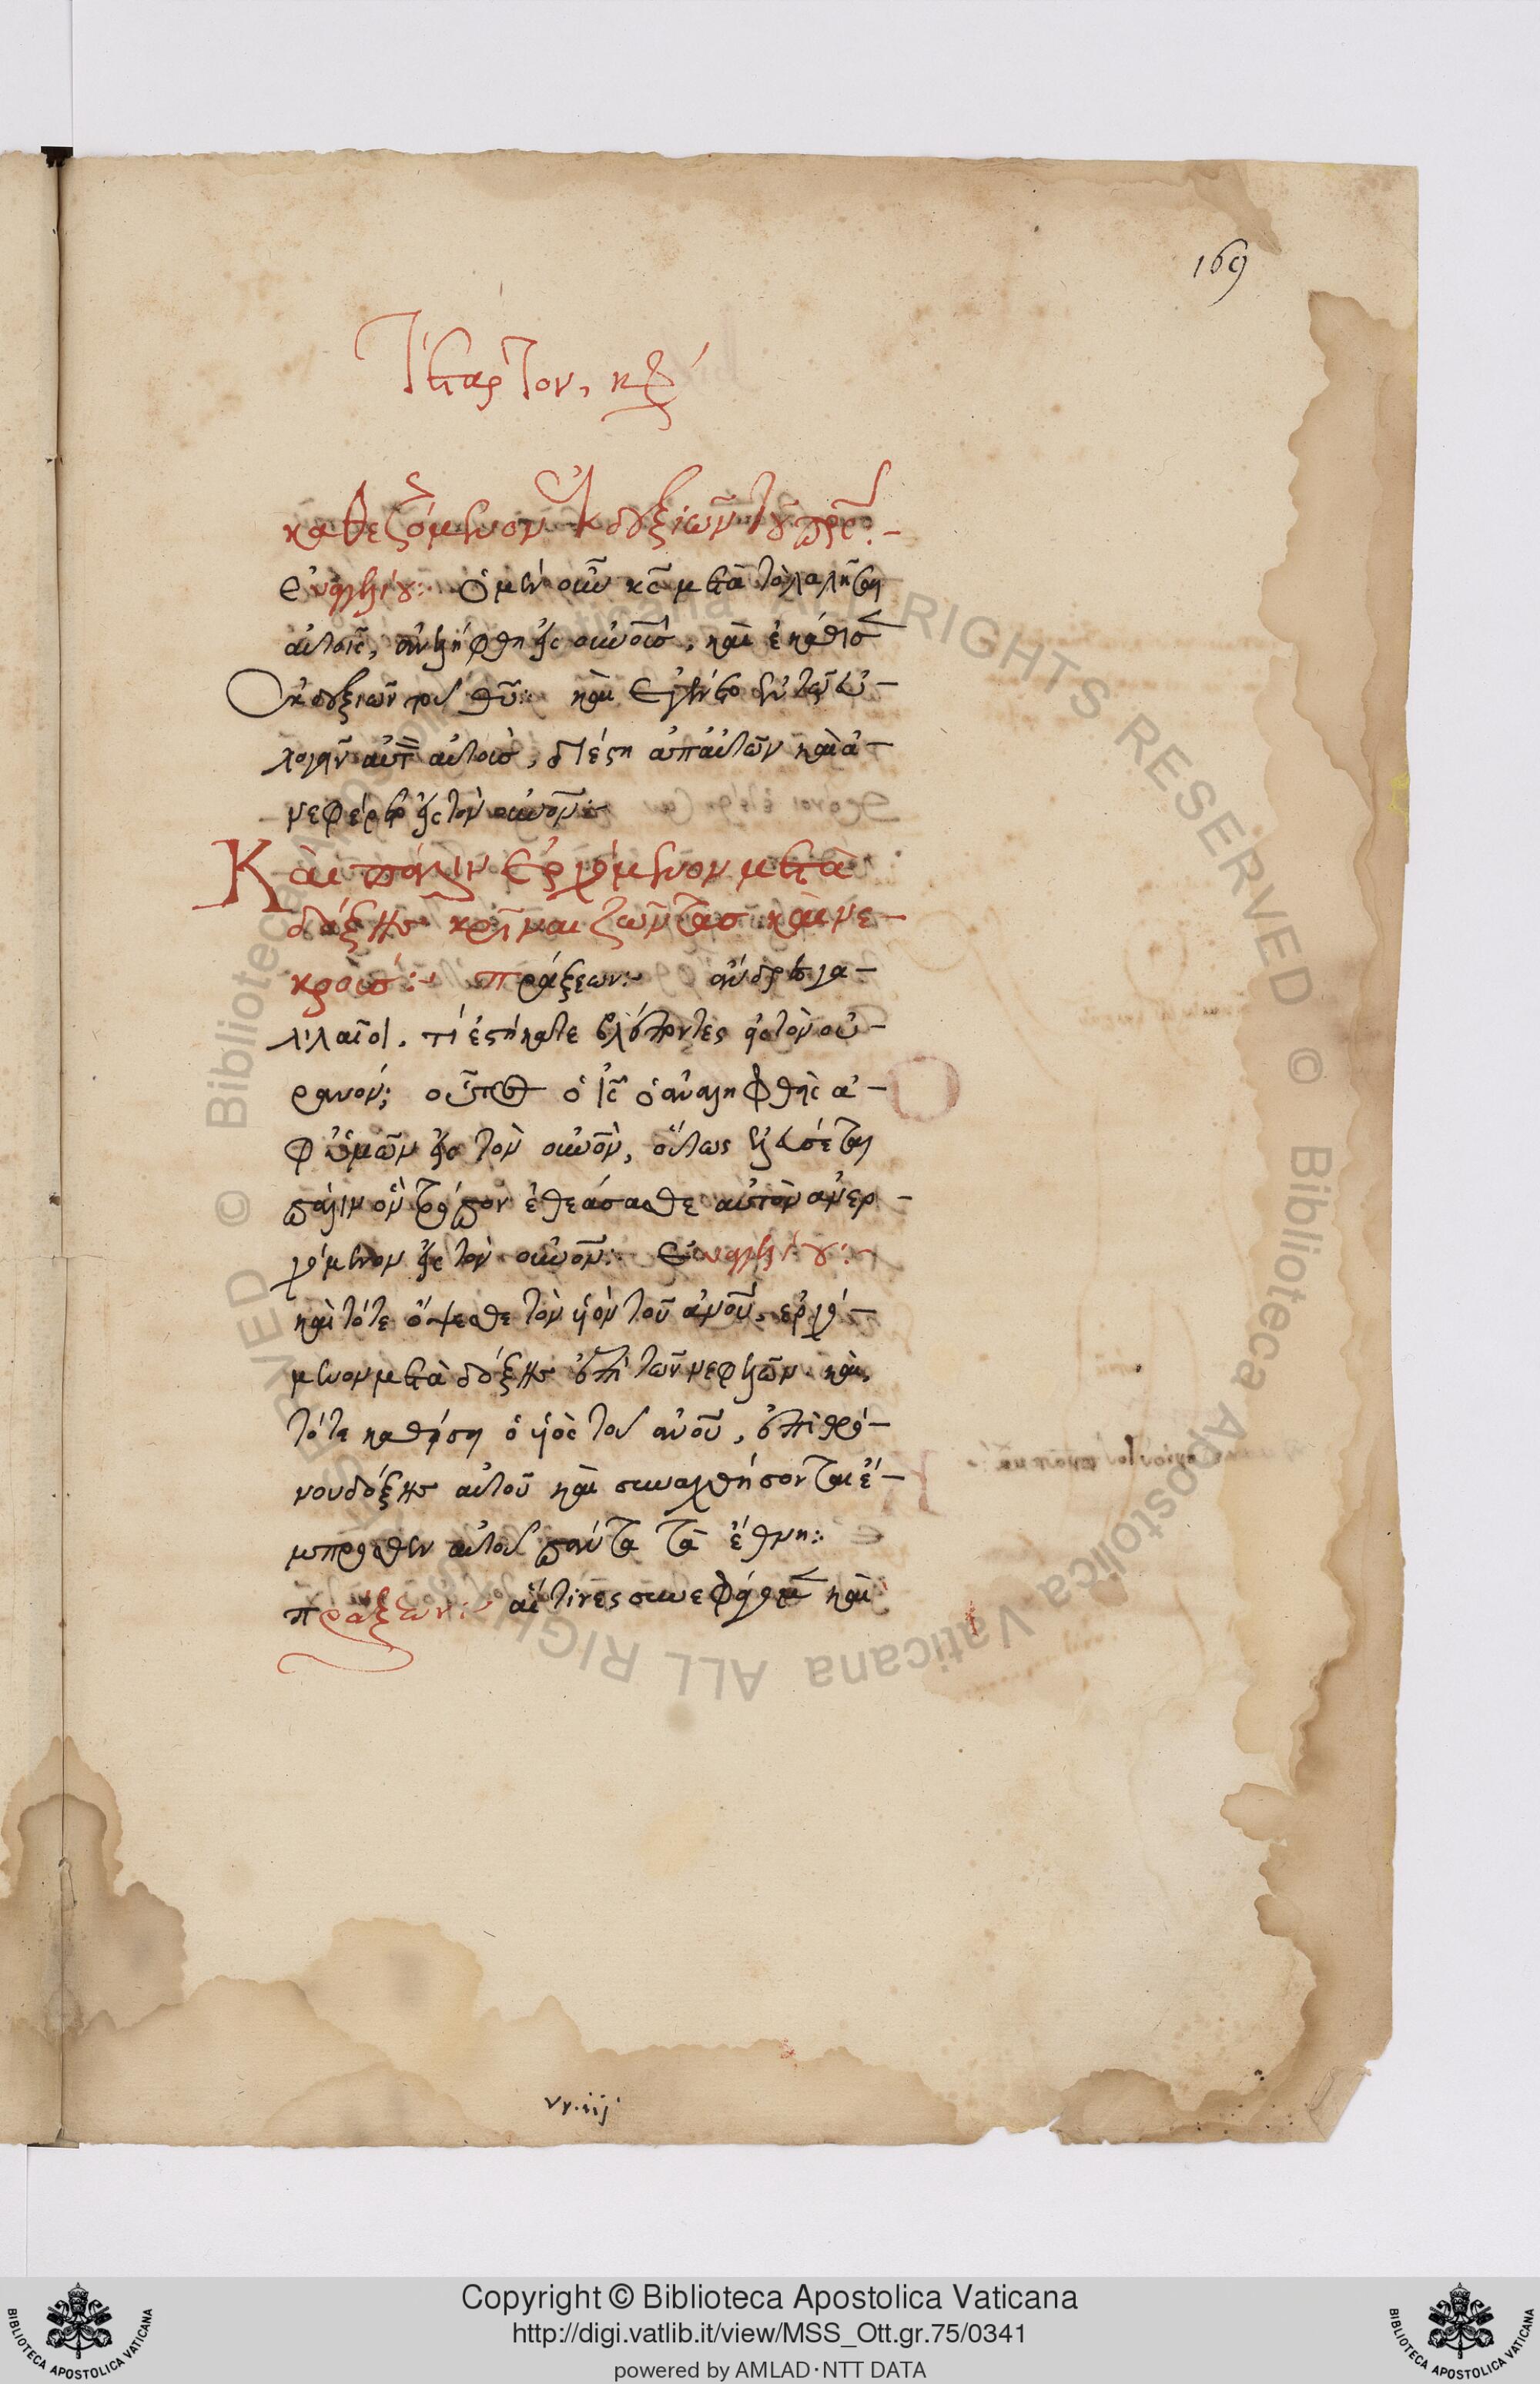 169
Τέταρτον, κδ΄
καθεζόμενον ἐκ δεξιῶν τοῦ πρς:–
Εὐαγγελίου: Ὁ μὲν οὖν κς μετὰ τὸ λαλῆσαι
αὐτοῖς, ἀνελήφθη εἰς οὐνοὺς, καὶ ἐκάθισεν
ἐκ δεξιῶν τοῦ θῦ: καὶ ἐγένετο ἐν τῶ εὐ–
λογεῖν αὐτὸν αὐτοὺς, διέστη ἀπ' αὐτῶν καὶ ἀ–
νεφέρετο εἰς τὸν οὐνον:
Καὶ πάλιν ἐρχόμενον μετὰ
δόξης κρῖναι ζῶντας καὶ νε–
κρούς: πράξεων: ἄνδρες γα–
λιλαῖοι, τί ἑστήκατε βλέποντες εἰς τὸν οὐ–
ρανόν; οὗτος ὁ ἰς ὁ ἀναληφθεὶς ἀ–
φ' ὑμῶν εἰς τὸν οὐνον, οὕτως ἐλεύσεται
πάλιν ὃν τρόπον ἐθεάσασθε αὐτὸν ἀνερ–
χόμενον εἰς τὸν οὐνον: Εὐαγγελίου:
καὶ τότε ὄψεσθε τὸν υἱὸν τοῦ ἀνου, ἐρχό–
μενον μετὰ δόξης ἐπὶ τῶν νεφελῶν καὶ
τότε καθήσει ὁ υἱὸς τοῦ ἀνου, ἐπὶ θρό–
νου δόξης αὐτοῦ καὶ συναχθήσονται ἔ–
μπροσθεν αὐτοῦ πάντα τὰ ἔθνη:
πράξεων: οἵτινες συνεφάγομεν καὶ
Copyright © Biblioteca Apostolica Vaticana
http://digi.vatlib.it/view/MSS_Ott.gr.75/0341
powered by AMLAD·NTT DATA
BIBLIOTECA APOSTOLICA VATICANA
BIBLIOTECA APOSTOLICA VATICANA
© Biblioteca Apostolica Vaticana ALL RIGHTS RESERVED © Biblioteca Apostolica Vaticana ALL RIGHTS RESERVED